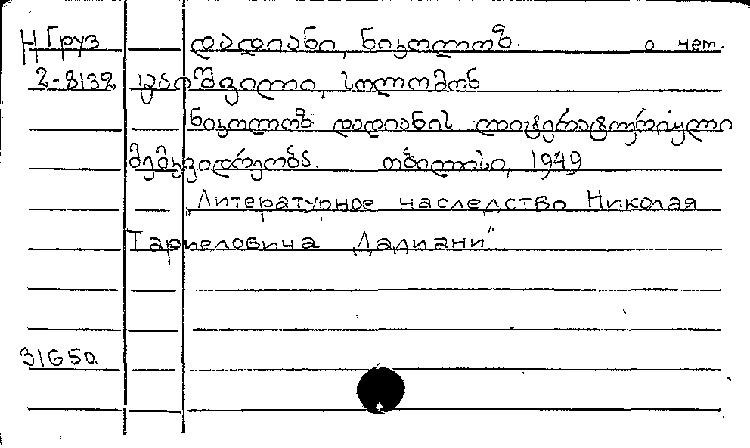 НГруз დადიანი, ნიკოლოზ. о нем.
2-8139 ყაოშვილი, სოლომონ
ნიკოლოზ დადიანის ლიტერატურული
მემკვიდრეობა. თბილისი, 1949
Литературное наследство Николая
Тариеловича „Дадиани"
31650